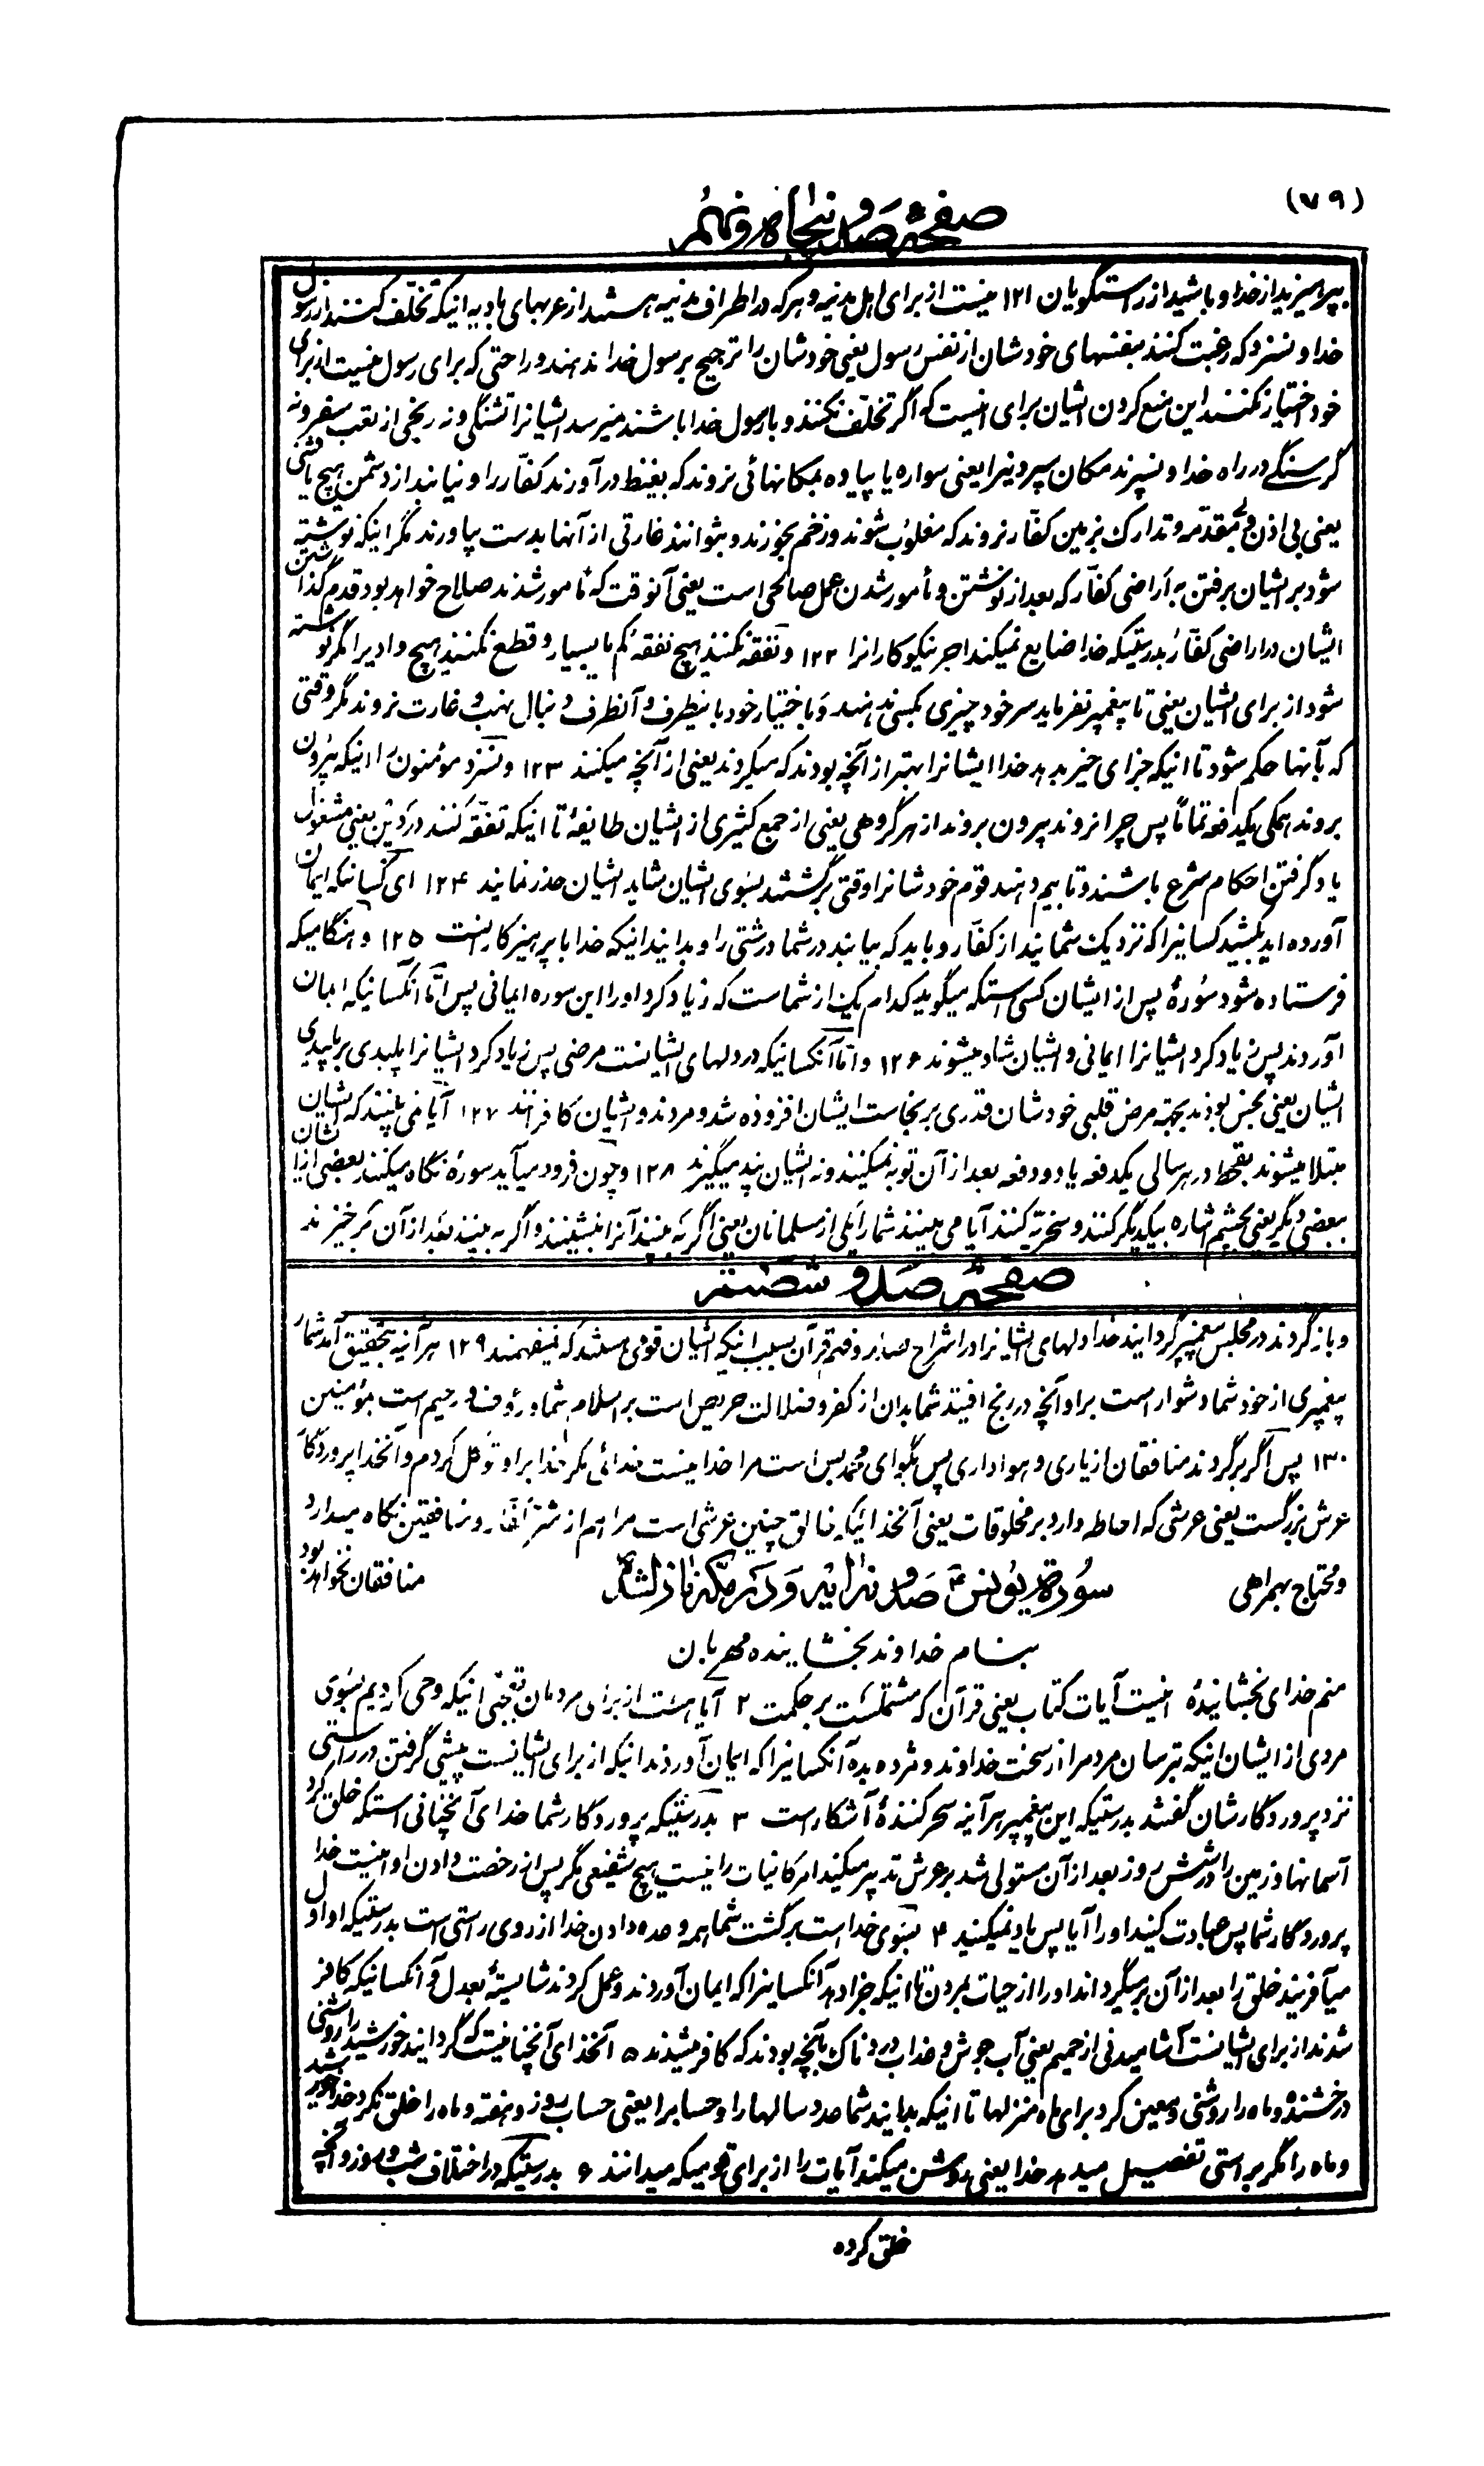 (۷۹)
صفحهٔ صد و پنجاه و نهم
بپرهیزید از خدا و باشید از راستگویان ۱۲۱ نیست از برای اهل مدینه و هر که در اطراف مدینه هستند از عربهای بادیه اینکه تخلّف کنند از رسول
خدا و نسزد که رغبت کنند بنفسهای خودشان از نفس رسول یعنی خودشان را ترجیح بر رسول خدا ندهند و راحتی که برای رسول نیست از برای
خود اختیار نکنند این منع کردن ایشان برای اینست که اگر تخلّف نکنند و با رسول خدا باشند نمیرسد ایشانرا تشنگی و نه رنجی از تعب سفر و نه
گرسنگی در راه خدا و نسپرند مکان سپردنیرا یعنی سواره یا پیاده بمکانهائی نروند که بغیظ درآورند کفّار را و نیابند از دشمن هیچ یافتنی
یعنی بی اذن و بی مقدّمه و تدارک بزمین کفّار نروند که مغلوب شوند و زخم بخورند و بتوانند غارتی از آنها بدست بیاورند مگر اینکه نوشته
شود بر ایشان برفتن به اراضی کفّار که بعد از نوشتن و مأمور شدن عمل صالحی است یعنی آنوقت که مأمور شدند صلاح خواهد بود قدم گذاشتن
ایشان در اراضی کفّار بدرستیکه خدا ضایع نمیکند اجر نیکوکارانرا ۱۲۲ و نفقه نکنند هیچ نفقه کم یا بسیار و قطع نکنند هیچ وادیرا مگر نوشته
شود از برای ایشان یعنی تا پیغمبر نفرماید سر خود چیزی بکسی ندهند و باختیار خود باینطرف و آنطرف دنبال نهب و غارت نروند مگر وقتی
که بآنها حکم شود تا اینکه جزای خیر بدهد خدا ایشانرا بهتر از آنچه بودند که میکردند یعنی از آنچه میکنند ۱۲۳ و نسزد مؤمنون را اینکه بیرون
بروند همگی یکدفعه تماماً پس چرا نروند بیرون بروند از هر گروهی یعنی از جمع کثیری از ایشان طایفهٔ تا اینکه تفقّه کنند در دین یعنی مشغول
یاد گرفتن احکام شرع باشند و تا بیم دهند قوم خودشانرا وقتی برگشتند بسوی ایشان شاید ایشان حذر نمایند ۱۲۴ ای کسانیکه ایمان
آورده‌اید بکشید کسانیرا که نزدیک شمایند از کفّار و باید که بیابند در شما درشتی را و بدانید اینکه خدا با پرهیزکارانست ۱۲۵ و هنگامیکه
فرستاده شود سورهٔ پس از ایشان کسی استکه میگوید کدام یک از شماست که زیاد کرد او را این سوره ایمانی پس امّا آنکسانیکه ایمان
آوردند پس زیاد کرد ایشانرا ایمانی و ایشان شاد میشوند ۱۲۶ و امّا آنکسانیکه در دلهای ایشانست مرضی پس زیاد کرد ایشانرا پلیدی بر پلیدی
ایشان یعنی نجس بودند بجهة مرض قلبی خودشان قدری بر نجاست ایشان افزوده شد و مردند و ایشان کافرانند ۱۲۷ آیا نمی بینند که ایشان
مبتلا میشوند بقحط در هر سالی یکدفعه یا دو دفعه بعد از آن توبه نمیکنند و نه ایشان پند میگیرند ۱۲۸ و چون فرود میآید سورهٔ نگاه میکنند بعضی از ایشان
ببعضی دیگر یعنی بچشم اشاره بیکدیگر کنند و سخریّه کنند آیا می بینند شما را یکی از مسلمانان یعنی اگر نه بینند آنرا بنشینند و اگر به بینند بعد از آن برخیزند
صفحهٔ صد و شصتم
و بازگردند در مجلس پیغمبر گردانید خدا دلهای ایشانرا در انشراح صدر و فهم قرآن بسبب اینکه ایشان قومی هستند که نمیفهمند ۱۲۹ هر آینه بتحقیق آمد شما را
پیغمبری از خود شما دشوار است بر او آنچه در رنج افتید شما بدان از کفر و ضلالت حریص است بر اسلام شما و رؤف و رحیم است بمؤمنین
۱۳۰ پس اگر برگردند منافقان از یاری و هواداری پس بگو ای محمّد بس است مرا خدا نیست خدائی مگر خدا بر او توکل کردم و آنخدا پروردگار
عرش بزرگست یعنی عرشی که احاطه دارد بر مخلوقات یعنی آنخدائیکه خالق چنین عرشی است مرا هم از شرّ کفّار و منافقین نگاه میدارد
و محتاج بهمراهی منافقان نخواهد بود
سورة یونس ع صد و نه آیه و در مکّه نازل شد
بنام خداوند بخشاینده مهربان
منم خدای بخشاینده اینست آیات کتاب یعنی قرآن که مشتملست بر حکمت ۲ آیا هست از برای مردمان تعجّبی اینکه وحی کردیم بسوی
مردی از ایشان اینکه بترسان مردم را از سخط خداوند و مژده بده آنکسانیرا که ایمان آوردند اینکه از برای ایشانست پیشی گرفتن در راستی
نزد پروردگارشان گفتند بدرستیکه این پیغمبر هر آینه سحر کنندهٔ آشکار است ۳ بدرستیکه پروردگار شما خدای آنچنانی استکه خلق کرد
آسمانها و زمین را در شش روز بعد از آن مستولی شد بر عرش تدبیر میکند امر کاینات را نیست هیچ شفیعی مگر پس از رخصت دادن او اینست خدا
پروردگار شما پس عبادت کنید او را آیا پس یاد نمیکنید ۴ بسوی خدا است برگشت شما همه وعده دادن خدا از روی راستی است بدرستیکه او اول
میآفریند خلق را بعد از آن برمیگرداند او را از حیات بمردن تا اینکه جزا دهد آنکسانیرا که ایمان آوردند و عمل کردند شایستهٔ بعدل و آنکسانیکه کافر
شدند از برای ایشانست آشامیدنی از حمیم یعنی آب جوش و عذاب دردناک بآنچه بودند که کافر میشدند ۵ آنخدای آنچنانیست که گردانید خورشید را روشنی
درخشنده و ماه را روشنی و معین کرد برای ماه منزلها تا اینکه بدانید شما عدد سالها را و حسابرا یعنی حساب روز و هفته و ماه را خلق نکرد خدا خورشید
و ماه را مگر براستی تفصیل میدهد خدا یعنی روشن میکند آیات را از برای قومیکه میدانند ۶ بدرستیکه در اختلاف شب و روز و آنچه
خلق کرده